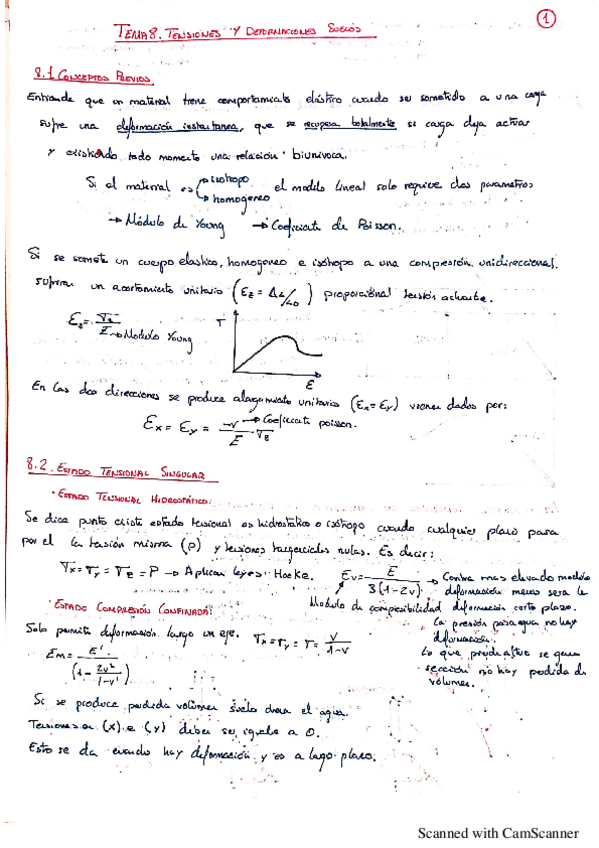 1
TEMA 8. TENSIONES Y DEFORMACIONES SUELOS
8.1 CONCEPTOS PREVIOS.
Entiende que un material tiene comportamiento elástico cuando ser sometido a una carga
sufre una deformación instantanea, que se recupera totalmente si carga deja actuar
y existiendo todo momento una relación biunivoca.
Si el material es isotropo homogeneo el modelo lineal solo requiere dos parametros
→ Módulo de Young → Coeficiente de Poisson.
Si se somete un cuerpo elastico, homogeneo e isótropo a una compresión unidireccional.
sufriran un acortamiento unitario (Ez = ΔL/L0) proporcional tensión actuante.
Ez = σz/E → Modulo Young
T
ε
En las dos direcciones se produce alargamiento unitario (Ex = Ey) vienen dados por:
Ex = Ey = -ν/E · σz → Coeficiente poisson.
8.2. ESTADO TENSIONAL SINGULAR
· ESTADO TENSIONAL HIDROSTÁTICO:
Se dice punto existe estado tensional es hidrostatico o isótropo cuando cualquier plano pasa
por el la tensión misma (p) y tensiones tangenciales nulas. Es decir:
σx = σy = σz = P → Aplican leyes Hooke. Ev = E / 3(1-2ν)
Modulo de compresibilidad
→ Contra mas elevado modulo
deformación menos sera la
deformación corto plazo.
La presión para agua no hay
deformación.
Lo que
no hay perdida de
volumen.
· ESTADO COMPRESIÓN CONFINADA:
Solo permite deformación largo un eje. σx = σy = σ = ν / 1-ν
Em = E' / (1 - 2ν² / 1-ν')
Si se produce perdida volumen suelo drena el agua.
Tensiones en (x) e (y) deben ser iguales a 0.
Esto se da cuando hay deformación y es a largo plazo.
Scanned with CamScanner